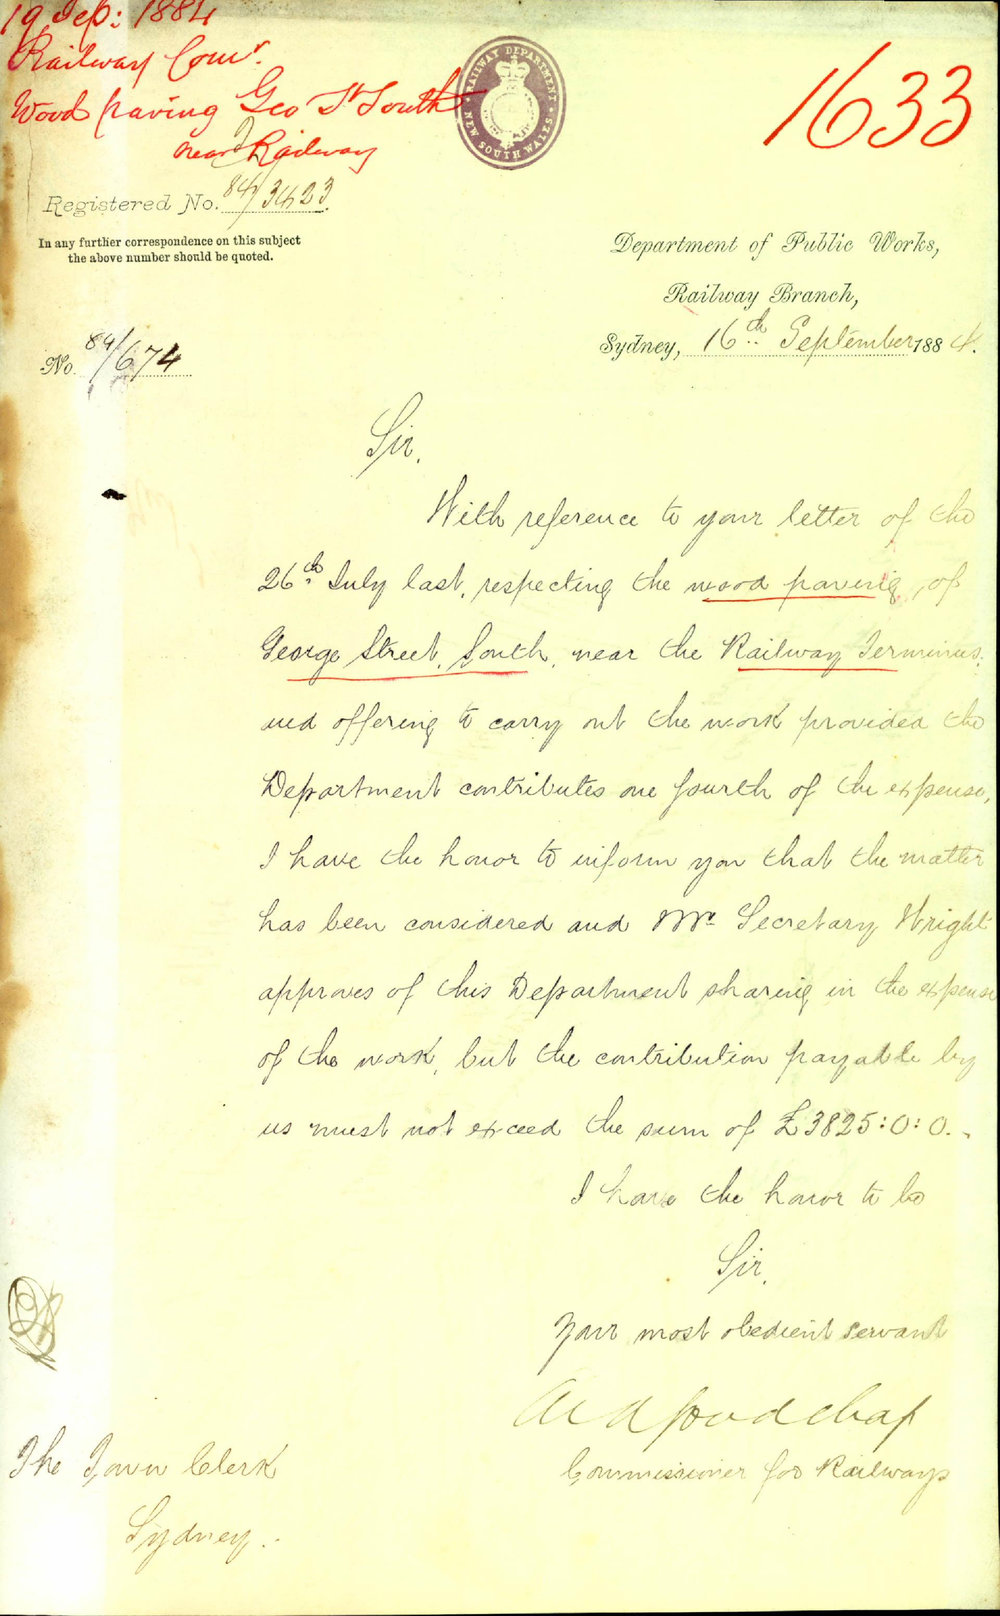 19 Sep: 1884
Railway Comr.
Wood paving Geo St South
near Railway
RAILWAY DEPARTMENT
NEW SOUTH WALES
1633
Registered No. 84/3423.
In any further correspondence on this subject
the above number should be quoted.
Department of Public Works,
Railway Branch,
Sydney, 16th September 1884.
No. 84/674
Sir,
With reference to your letter of the
26th July last, respecting the wood paving, of
George Street, South, near the Railway Terminus,
and offering to carry out the work provided the
Department contributes one fourth of the expense,
I have the honor to inform you that the matter
has been considered and Mr. Secretary Wright
approves of this Department sharing in the expense
of the work, but the contribution payable by
us must not exceed the sum of £3825:0:0.-
I have the honor to be
Sir,
Your most obedient servant
Chas A Goodchap
Commissioner for Railways
The Town Clerk
Sydney.